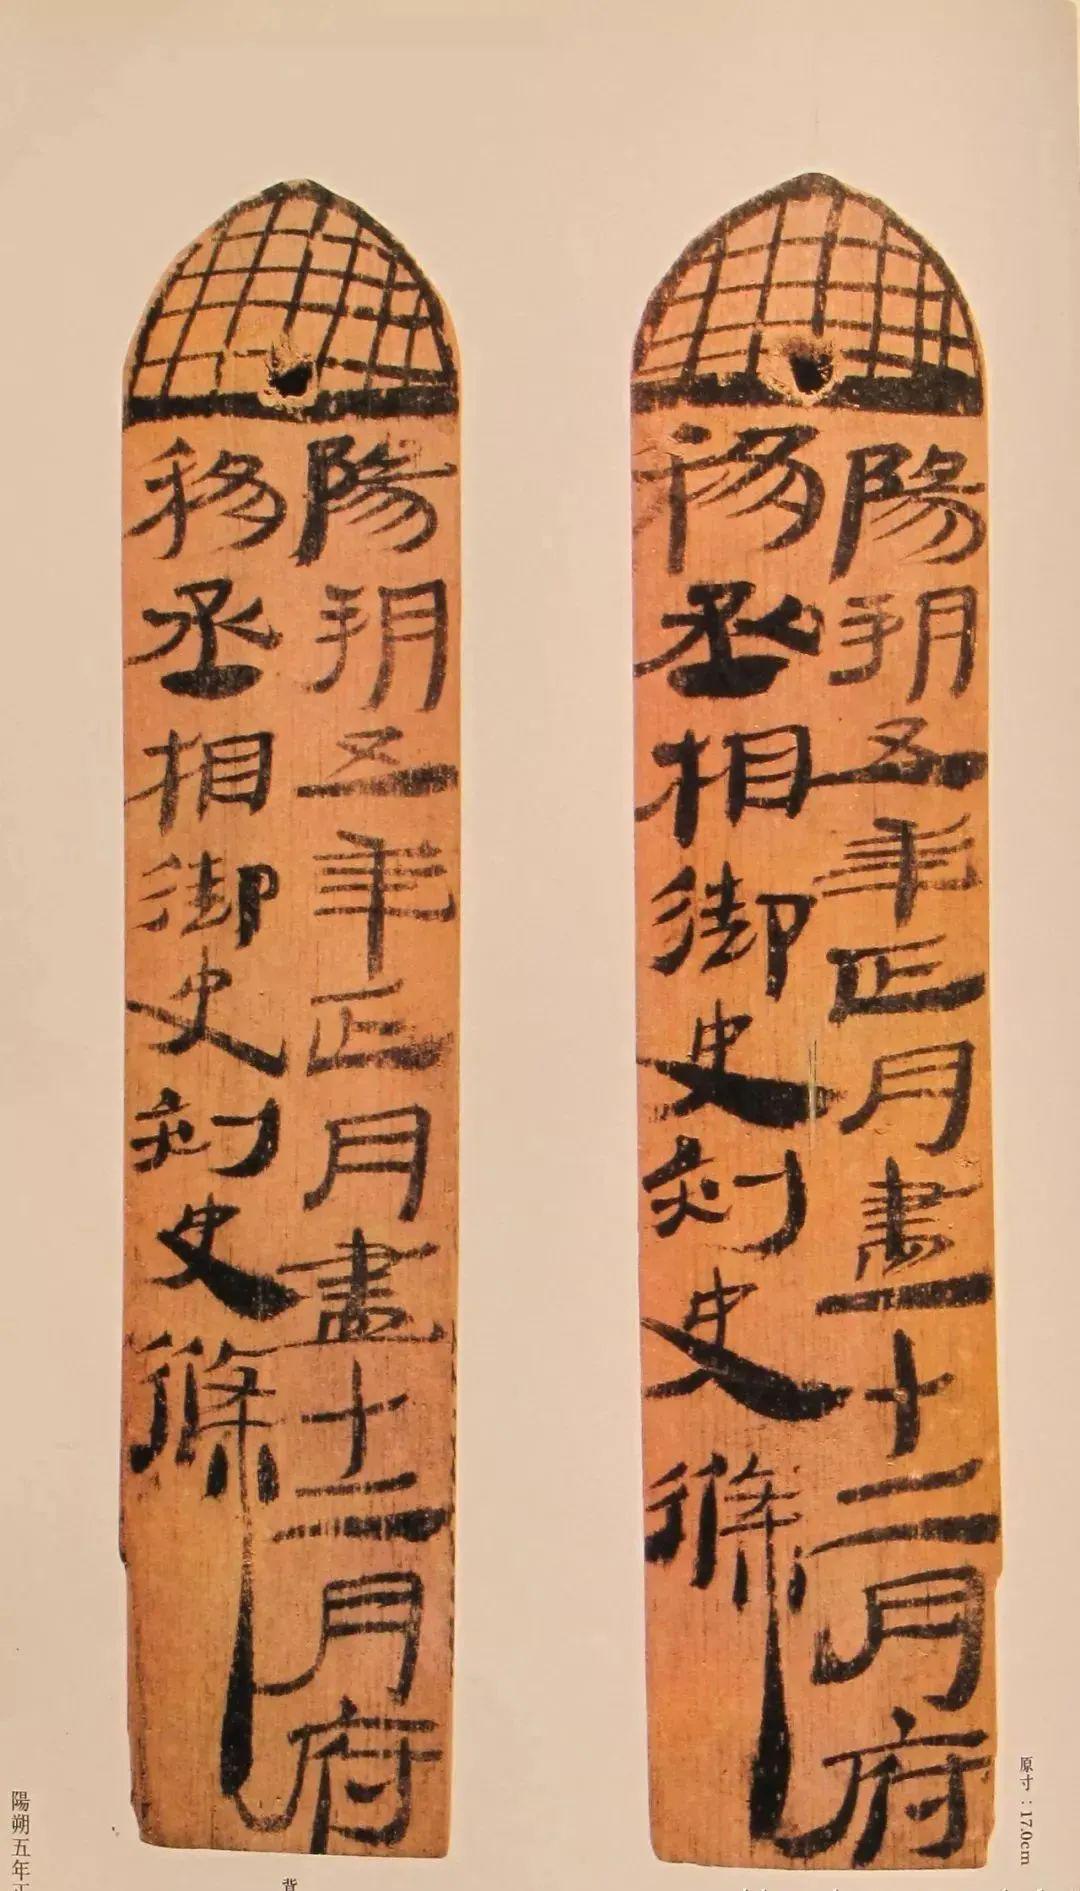 原寸：17.0cm
陽朔五年正月盡十二月府
移丞相御史刺史條
陽朔五年正月盡十二月府
移丞相御史刺史條
背
陽朔五年